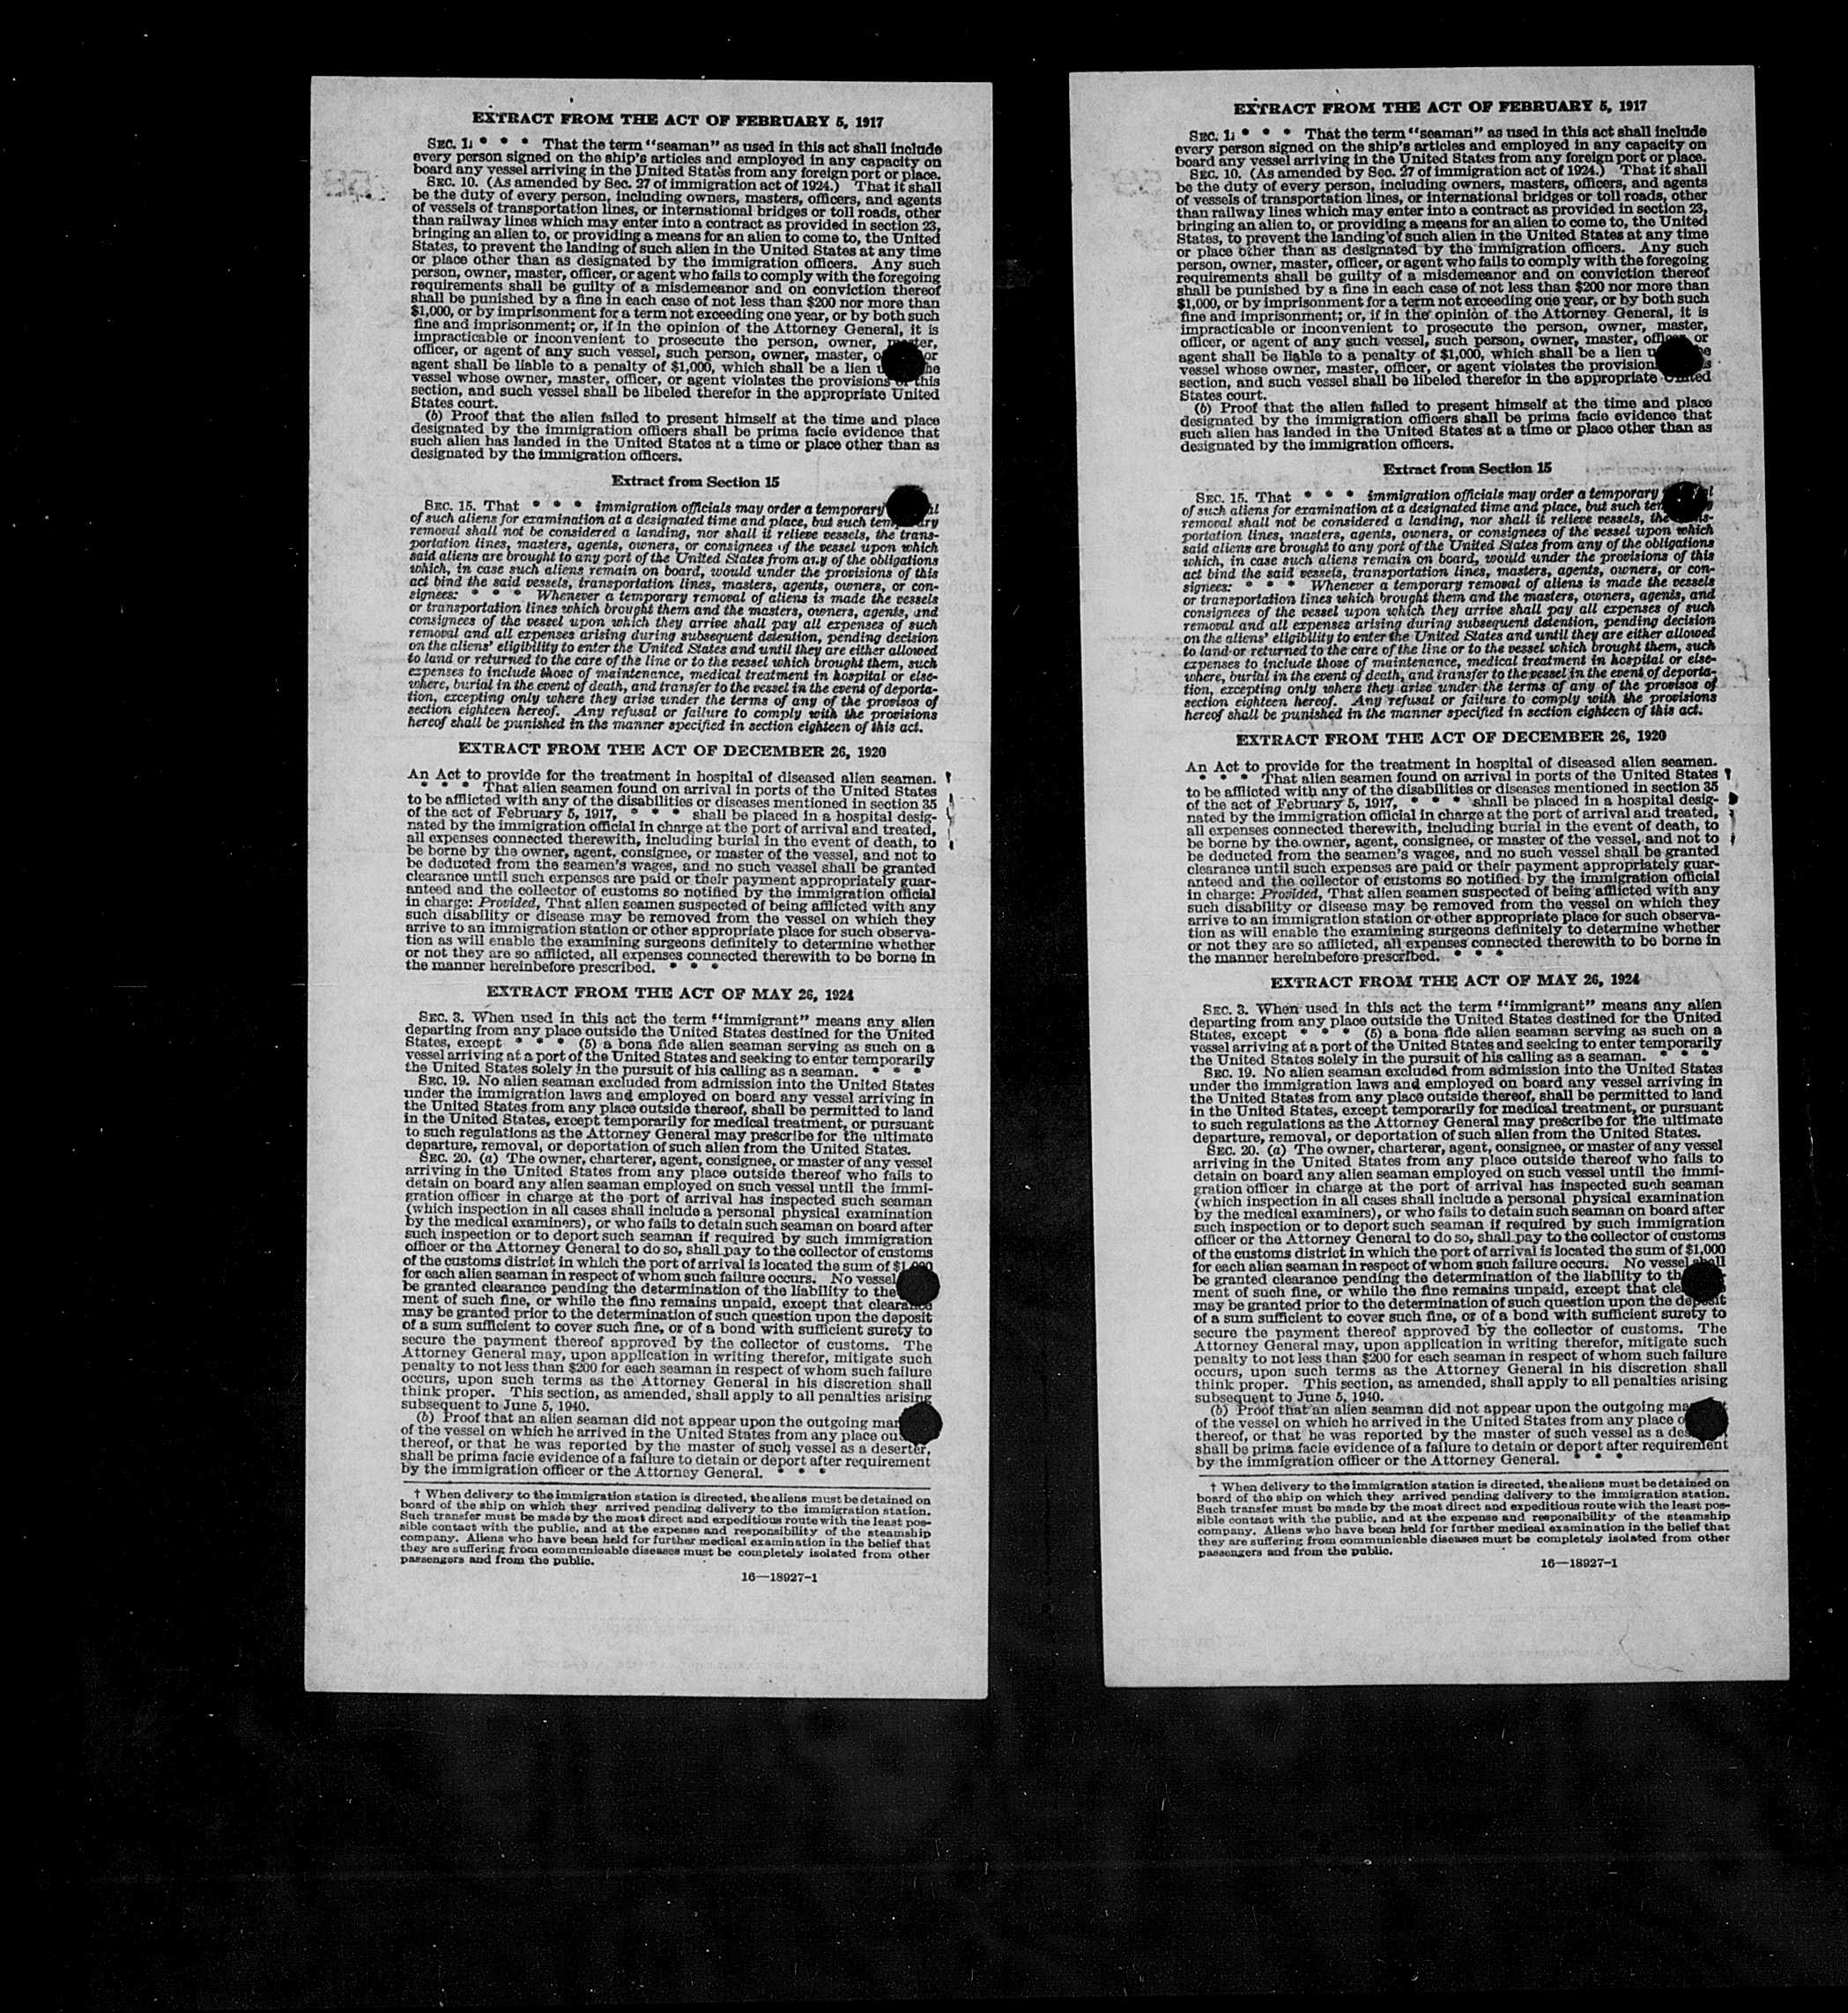 EXTRACT FROM THE ACT OF FEBRUARY 5, 1917
SEC. 1. * * * That the term "seaman" as used in this act shall include
every person signed on the ship's articles and employed in any capacity on
board any vessel arriving in the United States from any foreign port or place.
SEC. 10. (As amended by Sec. 27 of immigration act of 1924.) That it shall
be the duty of every person, including owners, masters, officers, and agents
of vessels of transportation lines, or international bridges or toll roads, other
than railway lines which may enter into a contract as provided in section 23,
bringing an alien to, or providing a means for an alien to come to, the United
States, to prevent the landing of such alien in the United States at any time
or place other than as designated by the immigration officers. Any such
person, owner, master, officer, or agent who fails to comply with the foregoing
requirements shall be guilty of a misdemeanor and on conviction thereof
shall be punished by a fine in each case of not less than $200 nor more than
$1,000, or by imprisonment for a term not exceeding one year, or by both such
fine and imprisonment; or, if in the opinion of the Attorney General, it is
impracticable or inconvenient to prosecute the person, owner, master,
officer, or agent of any such vessel, such person, owner, master, or
agent shall be liable to a penalty of $1,000, which shall be a lien
vessel whose owner, master, officer, or agent violates the provisions of this
section, and such vessel shall be libeled therefor in the appropriate United
States court.
(b) Proof that the alien failed to present himself at the time and place
designated by the immigration officers shall be prima facie evidence that
such alien has landed in the United States at a time or place other than as
designated by the immigration officers.
Extract from Section 15
SEC. 15. That * * * immigration officials may order a temporary
of such aliens for examination at a designated time and place, but such temporary
removal shall not be considered a landing, nor shall it relieve vessels, the trans-
portation lines, masters, agents, owners, or consignees of the vessel upon which
said aliens are brought to any port of the United States from any of the obligations
which, in case such aliens remain on board, would under the provisions of this
act bind the said vessels, transportation lines, masters, agents, owners, or con-
signees: * * * Whenever a temporary removal of aliens is made the vessels
or transportation lines which brought them and the masters, owners, agents, and
consignees of the vessel upon which they arrive shall pay all expenses of such
removal and all expenses arising during subsequent detention, pending decision
on the aliens' eligibility to enter the United States and until they are either allowed
to land or returned to the care of the line or to the vessel which brought them, such
expenses to include those of maintenance, medical treatment in hospital or else-
where, burial in the event of death, and transfer to the vessel in the event of deporta-
tion, excepting only where they arise under the terms of any of the provisos of
section eighteen hereof. Any refusal or failure to comply with the provisions
hereof shall be punished in the manner specified in section eighteen of this act.
EXTRACT FROM THE ACT OF DECEMBER 26, 1920
An Act to provide for the treatment in hospital of diseased alien seamen.
* * * That alien seamen found on arrival in ports of the United States
to be afflicted with any of the disabilities or diseases mentioned in section 35
of the act of February 5, 1917, * * * shall be placed in a hospital desig-
nated by the immigration official in charge at the port of arrival and treated,
all expenses connected therewith, including burial in the event of death, to
be borne by the owner, agent, consignee, or master of the vessel, and not to
be deducted from the seamen's wages, and no such vessel shall be granted
clearance until such expenses are paid or their payment appropriately guar-
anteed and the collector of customs so notified by the immigration official
in charge: Provided, That alien seamen suspected of being afflicted with any
such disability or disease may be removed from the vessel on which they
arrive to an immigration station or other appropriate place for such observa-
tion as will enable the examining surgeons definitely to determine whether
or not they are so afflicted, all expenses connected therewith to be borne in
the manner hereinbefore prescribed. * * *
EXTRACT FROM THE ACT OF MAY 26, 1924
SEC. 3. When used in this act the term "immigrant" means any alien
departing from any place outside the United States destined for the United
States, except * * * (5) a bona fide alien seaman serving as such on a
vessel arriving at a port of the United States and seeking to enter temporarily
the United States solely in the pursuit of his calling as a seaman. * * *
SEC. 19. No alien seaman excluded from admission into the United States
under the immigration laws and employed on board any vessel arriving in
the United States from any place outside thereof, shall be permitted to land
in the United States, except temporarily for medical treatment, or pursuant
to such regulations as the Attorney General may prescribe for the ultimate
departure, removal, or deportation of such alien from the United States.
SEC. 20. (a) The owner, charterer, agent, consignee, or master of any vessel
arriving in the United States from any place outside thereof who fails to
detain on board any alien seaman employed on such vessel until the immi-
gration officer in charge at the port of arrival has inspected such seaman
(which inspection in all cases shall include a personal physical examination
by the medical examiners), or who fails to detain such seaman on board after
such inspection or to deport such seaman if required by such immigration
officer or the Attorney General to do so, shall pay to the collector of customs
of the customs district in which the port of arrival is located the sum of $1,000
for each alien seaman in respect of whom such failure occurs. No vessel
be granted clearance pending the determination of the liability to the
ment of such fine, or while the fine remains unpaid, except that clearance
may be granted prior to the determination of such question upon the deposit
of a sum sufficient to cover such fine, or of a bond with sufficient surety to
secure the payment thereof approved by the collector of customs. The
Attorney General may, upon application in writing therefor, mitigate such
penalty to not less than $200 for each seaman in respect of whom such failure
occurs, upon such terms as the Attorney General in his discretion shall
think proper. This section, as amended, shall apply to all penalties arising
subsequent to June 5, 1940.
(b) Proof that an alien seaman did not appear upon the outgoing
of the vessel on which he arrived in the United States from any place
thereof, or that he was reported by the master of such vessel as a deserter,
shall be prima facie evidence of a failure to detain or deport after requirement
by the immigration officer or the Attorney General. * * *
† When delivery to the immigration station is directed, the aliens must be detained on
board of the ship on which they arrived pending delivery to the immigration station.
Such transfer must be made by the most direct and expeditious route with the least pos-
sible contact with the public, and at the expense and responsibility of the steamship
company. Aliens who have been held for further medical examination in the belief that
they are suffering from communicable diseases must be completely isolated from other
passengers and from the public.
16—18927-1
EXTRACT FROM THE ACT OF FEBRUARY 5, 1917
SEC. 1. * * * That the term "seaman" as used in this act shall include
every person signed on the ship's articles and employed in any capacity on
board any vessel arriving in the United States from any foreign port or place.
SEC. 10. (As amended by Sec. 27 of immigration act of 1924.) That it shall
be the duty of every person, including owners, masters, officers, and agents
of vessels of transportation lines, or international bridges or toll roads, other
than railway lines which may enter into a contract as provided in section 23,
bringing an alien to, or providing a means for an alien to come to, the United
States, to prevent the landing of such alien in the United States at any time
or place other than as designated by the immigration officers. Any such
person, owner, master, officer, or agent who fails to comply with the foregoing
requirements shall be guilty of a misdemeanor and on conviction thereof
shall be punished by a fine in each case of not less than $200 nor more than
$1,000, or by imprisonment for a term not exceeding one year, or by both such
fine and imprisonment; or, if in the opinion of the Attorney General, it is
impracticable or inconvenient to prosecute the person, owner, master,
officer, or agent of any such vessel, such person, owner, master, officer or
agent shall be liable to a penalty of $1,000, which shall be a lien
vessel whose owner, master, officer, or agent violates the
section, and such vessel shall be libeled therefor in the appropriate United
States court.
(b) Proof that the alien failed to present himself at the time and place
designated by the immigration officers shall be prima facie evidence that
such alien has landed in the United States at a time or place other than as
designated by the immigration officers.
Extract from Section 15
SEC. 15. That * * * immigration officials may order a temporary
of such aliens for examination at a designated time and place, but such
removal shall not be considered a landing, nor shall it relieve vessels, the
portation lines, masters, agents, owners, or consignees of the vessel upon which
said aliens are brought to any port of the United States from any of the obligations
which, in case such aliens remain on board, would under the provisions of this
act bind the said vessels, transportation lines, masters, agents, owners, or con-
signees: * * * Whenever a temporary removal of aliens is made the vessels
or transportation lines which brought them and the masters, owners, agents, and
consignees of the vessel upon which they arrive shall pay all expenses of such
removal and all expenses arising during subsequent detention, pending decision
on the aliens' eligibility to enter the United States and until they are either allowed
to land or returned to the care of the line or to the vessel which brought them, such
expenses to include those of maintenance, medical treatment in hospital or else-
where, burial in the event of death, and transfer to the vessel in the event of deporta-
tion, excepting only where they arise under the terms of any of the provisos of
section eighteen hereof. Any refusal or failure to comply with the provisions
hereof shall be punished in the manner specified in section eighteen of this act.
EXTRACT FROM THE ACT OF DECEMBER 26, 1920
An Act to provide for the treatment in hospital of diseased alien seamen.
* * * That alien seamen found on arrival in ports of the United States
to be afflicted with any of the disabilities or diseases mentioned in section 35
of the act of February 5, 1917, * * * shall be placed in a hospital desig-
nated by the immigration official in charge at the port of arrival and treated,
all expenses connected therewith, including burial in the event of death, to
be borne by the owner, agent, consignee, or master of the vessel, and not to
be deducted from the seamen's wages, and no such vessel shall be granted
clearance until such expenses are paid or their payment appropriately guar-
anteed and the collector of customs so notified by the immigration official
in charge: Provided, That alien seamen suspected of being afflicted with any
such disability or disease may be removed from the vessel on which they
arrive to an immigration station or other appropriate place for such observa-
tion as will enable the examining surgeons definitely to determine whether
or not they are so afflicted, all expenses connected therewith to be borne in
the manner hereinbefore prescribed. * * *
EXTRACT FROM THE ACT OF MAY 26, 1924
SEC. 3. When used in this act the term "immigrant" means any alien
departing from any place outside the United States destined for the United
States, except * * * (5) a bona fide alien seaman serving as such on a
vessel arriving at a port of the United States and seeking to enter temporarily
the United States solely in the pursuit of his calling as a seaman. * * *
SEC. 19. No alien seaman excluded from admission into the United States
under the immigration laws and employed on board any vessel arriving in
the United States from any place outside thereof, shall be permitted to land
in the United States, except temporarily for medical treatment, or pursuant
to such regulations as the Attorney General may prescribe for the ultimate
departure, removal, or deportation of such alien from the United States.
SEC. 20. (a) The owner, charterer, agent, consignee, or master of any vessel
arriving in the United States from any place outside thereof who fails to
detain on board any alien seaman employed on such vessel until the immi-
gration officer in charge at the port of arrival has inspected such seaman
(which inspection in all cases shall include a personal physical examination
by the medical examiners), or who fails to detain such seaman on board after
such inspection or to deport such seaman if required by such immigration
officer or the Attorney General to do so, shall pay to the collector of customs
of the customs district in which the port of arrival is located the sum of $1,000
for each alien seaman in respect of whom such failure occurs. No vessel shall
be granted clearance pending the determination of the liability to
ment of such fine, or while the fine remains unpaid, except that
may be granted prior to the determination of such question upon the deposit
of a sum sufficient to cover such fine, or of a bond with sufficient surety to
secure the payment thereof approved by the collector of customs. The
Attorney General may, upon application in writing therefor, mitigate such
penalty to not less than $200 for each seaman in respect of whom such failure
occurs, upon such terms as the Attorney General in his discretion shall
think proper. This section, as amended, shall apply to all penalties arising
subsequent to June 5, 1940.
(b) Proof that an alien seaman did not appear upon the outgoing
of the vessel on which he arrived in the United States from any place
thereof, or that he was reported by the master of such vessel as a
shall be prima facie evidence of a failure to detain or deport after requirement
by the immigration officer or the Attorney General. * * *
† When delivery to the immigration station is directed, the aliens must be detained on
board of the ship on which they arrived pending delivery to the immigration station.
Such transfer must be made by the most direct and expeditious route with the least pos-
sible contact with the public, and at the expense and responsibility of the steamship
company. Aliens who have been held for further medical examination in the belief that
they are suffering from communicable diseases must be completely isolated from other
passengers and from the public.
16—18927-1